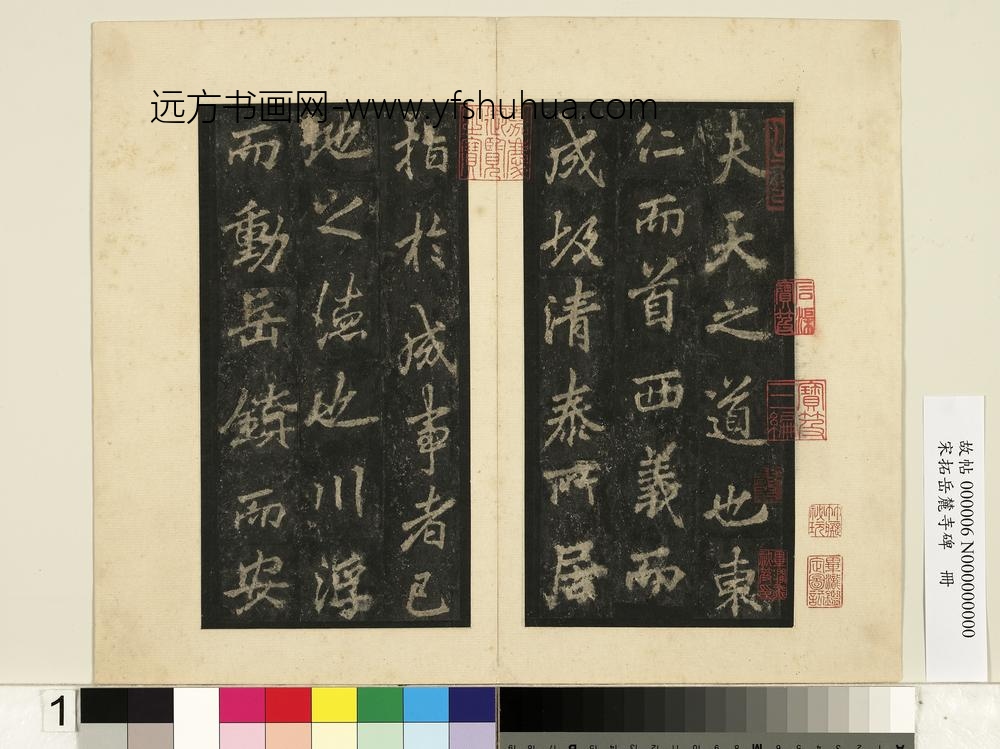 远方书画网-www.yfshuhua.com
夫天之道也東
仁而首西義而
成故清泰所居
指於成事者已
地之德也川浮
而動岳鎮而安
故帖 000006 N000000000
宋拓岳麓寺碑 冊
1